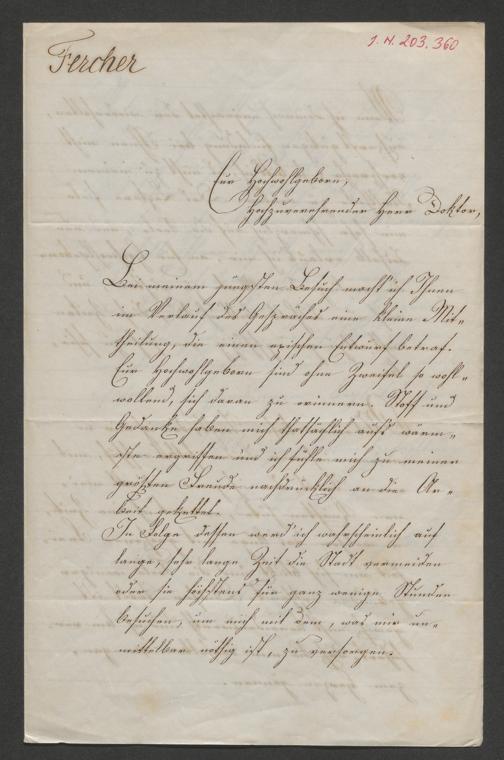 Fercher
I. N. 203.360
Eur Hochwohlgeborn,
Hochzuverehrender Herr Doktor,
Bei meinem jüngsten Besuch macht' ich Ihnen
im Verlauf des Gespräches eine kleine Mit-
theilung, die einen epischen Entwurf betraf.
Eur Hochwohlgeborn sind ohne Zweifel so wohl-
wollend, sich daran zu erinnern. Stoff und
Gedanke haben mich thatsächlich aufs wärm-
ste ergriffen und ich fühle mich zu meiner
größten Freude nachdrücklich an die Ar-
beit gekettet.
In Folge dessen werd' ich wahrscheinlich auf
lange, sehr lange Zeit die Stadt vermeiden
oder sie höchstens für ganz wenige Stunden
besuchen, um mich mit dem, was mir un-
mittelbar nöthig ist, zu versorgen.